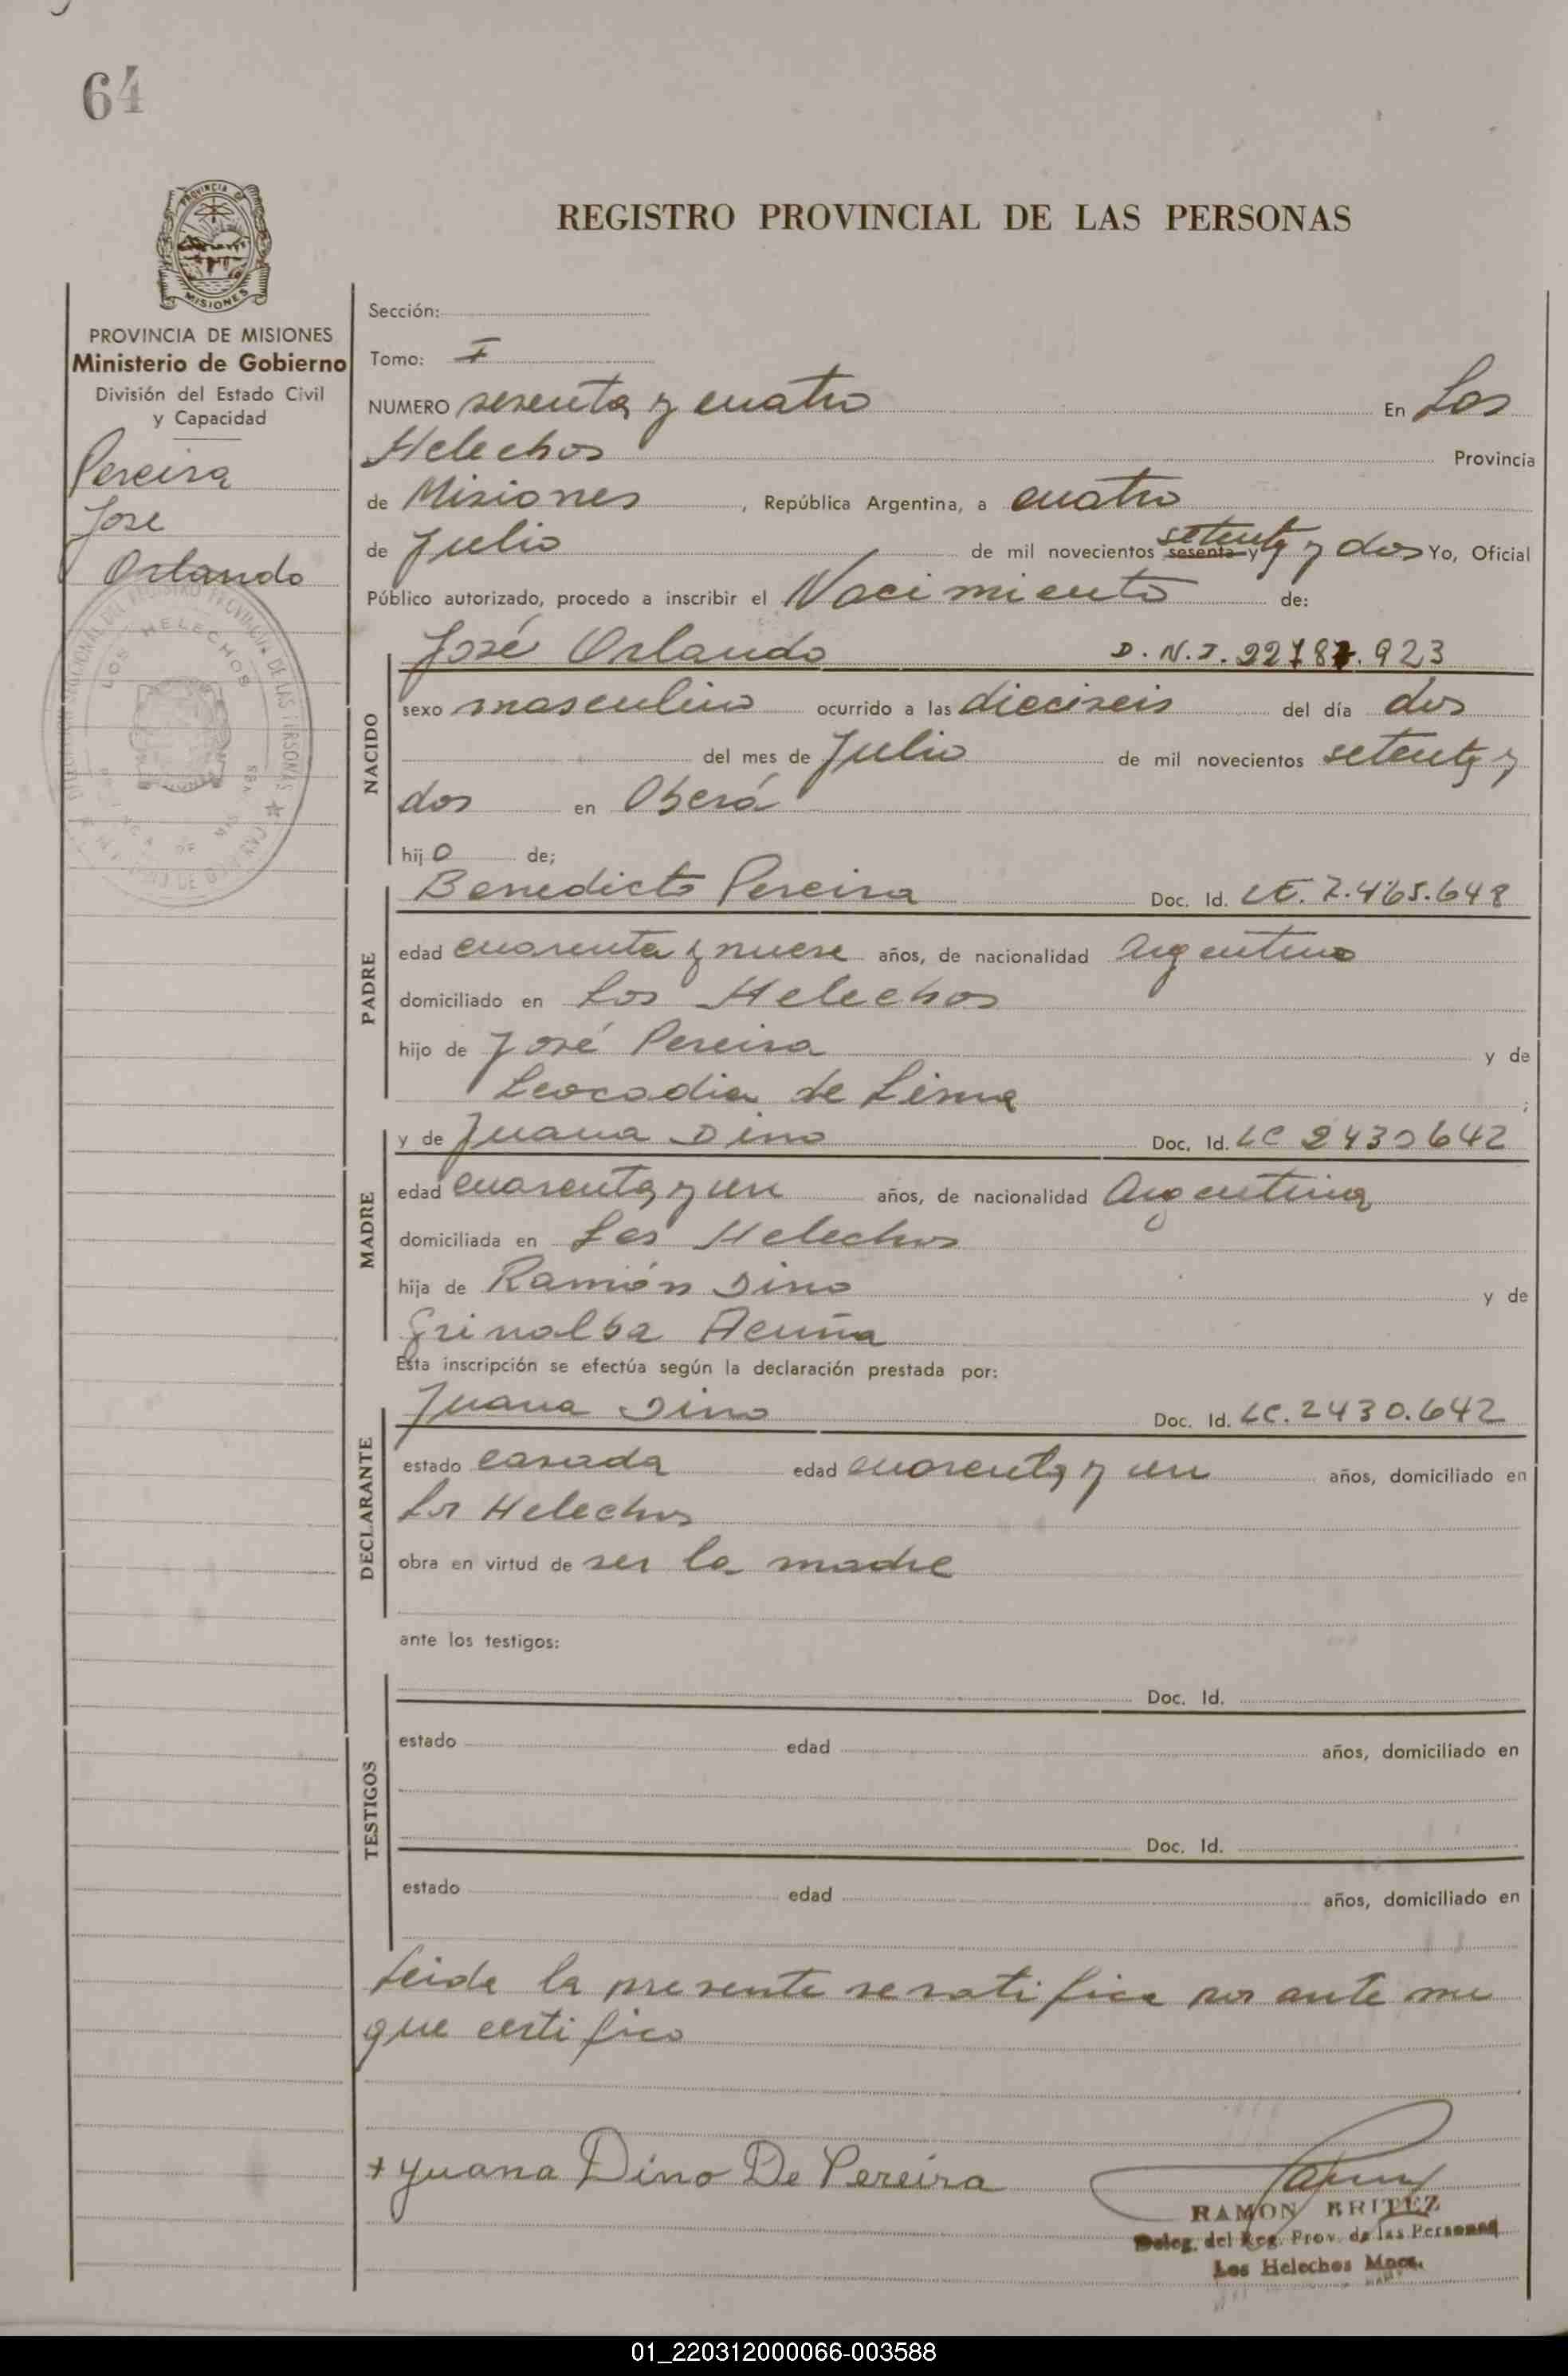 64
PROVINCIA DE
MISIONES
REGISTRO PROVINCIAL DE LAS PERSONAS
PROVINCIA DE MISIONES
Ministerio de Gobierno
División del Estado Civil
y Capacidad
Pereira
Jose
Orlando
LOS HELECHOS
Sección:
Tomo: I
NUMERO sesenta y cuatro En Los
Helechos Provincia
de Misiones, República Argentina, a cuatro
de Julio de mil novecientos sesenta y setenta y dos Yo, Oficial
Público autorizado, procedo a inscribir el Nacimiento de:
NACIDO
José Orlando D.N.I. 22787.923
sexo masculino ocurrido a las dieciseis del día dos
del mes de Julio de mil novecientos setenta y
dos en Oberá
hijo de;
PADRE
Benedicto Pereira Doc. Id. LE. 7.465.648
edad cuarenta y nueve años, de nacionalidad Argentino
domiciliado en Los Helechos
hijo de José Pereira y de
Leocadia de Lima ;
MADRE
y de Juana Dino Doc. Id. LC 2430642
edad cuarenta y un años, de nacionalidad Argentina
domiciliada en Los Helechos
hija de Ramón Dino y de
Grinalba Acuña
Esta inscripción se efectúa según la declaración prestada por:
DECLARANTE
Juana Dino Doc. Id. LC. 2430.642
estado casada edad cuarenta y un años, domiciliado en
Los Helechos
obra en virtud de ser la madre
ante los testigos:
TESTIGOS
Doc. Id.
estado edad años, domiciliado en
Doc. Id.
estado edad años, domiciliado en
Leida la presente se ratifica por ante mi
que certifico
+ Juana Dino De Pereira
RAMON BRITEZ
Deleg. del Reg. Prov. de las Personas
Los Helechos Mnes.
01_220312000066-003588